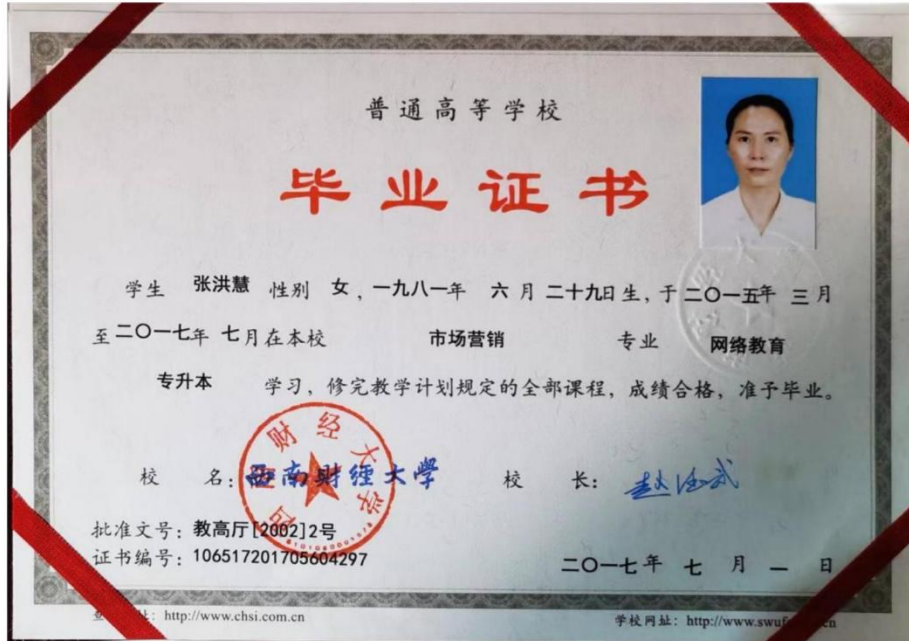 普通高等学校
毕业证书
学生 张洪慧 性别 女，一九八一年 六 月 二十九日生，于 二〇一五年 三 月
至 二〇一七年 七 月 在本校 市场营销 专业 网络教育
专升本 学习，修完教学计划规定的全部课程，成绩合格，准予毕业。
校 名：西南财经大學 校 长：赵德武
西南财经大学
批准文号：教高厅[2002]2号
证书编号：106517201705604297
二〇一七 年 七 月 一 日
址：http://www.chsi.com.cn 学校网址：http://www.swuf